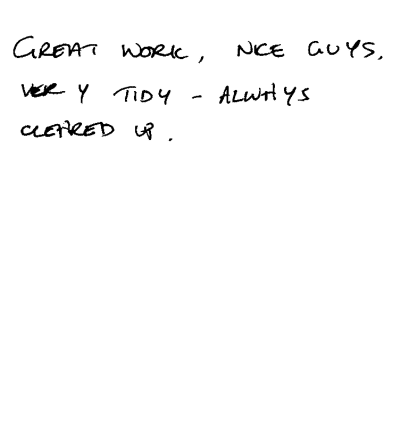 GREAT WORK, NICE GUYS.
VERY TIDY - ALWAYS
CLEARED UP.